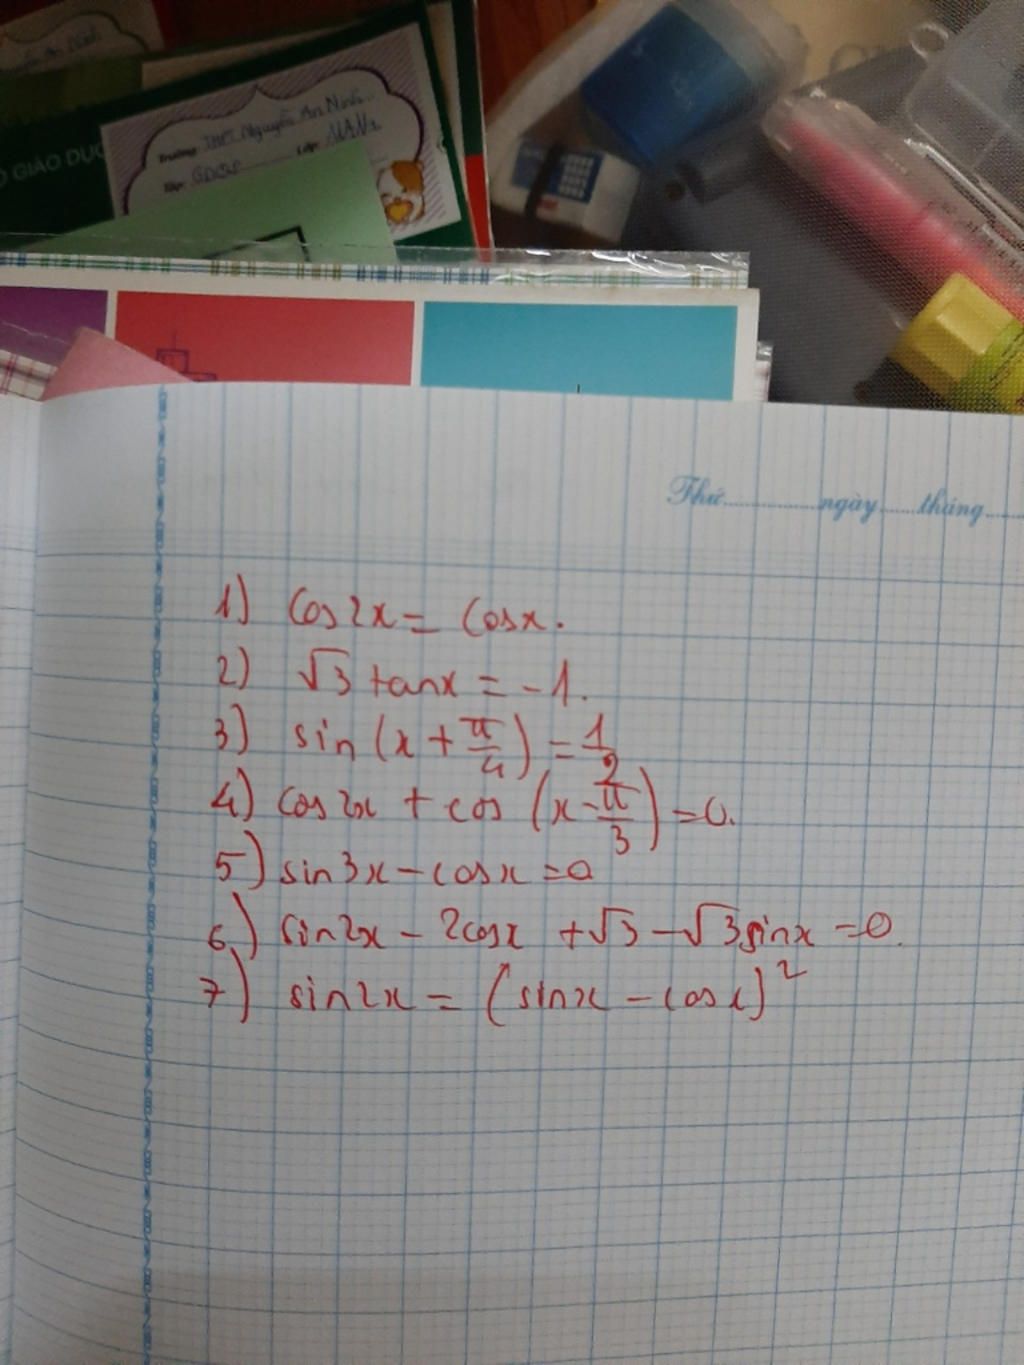 GIÁO DỤC
Trường: THPT Nguyễn An Ninh
Lớp: 11AN1
Tập: GDCD
Thứ ngày tháng
1) cos2x = cosx.
2) √3 tanx = -1.
3) sin (x + π/4) = 1/2
4) cos2x + cos (x - π/3) = 0.
5) sin3x - cosx = 0
6) sin2x - 2cosx + √3 - √3sinx = 0.
7) sin2x = (sinx - cosx)²